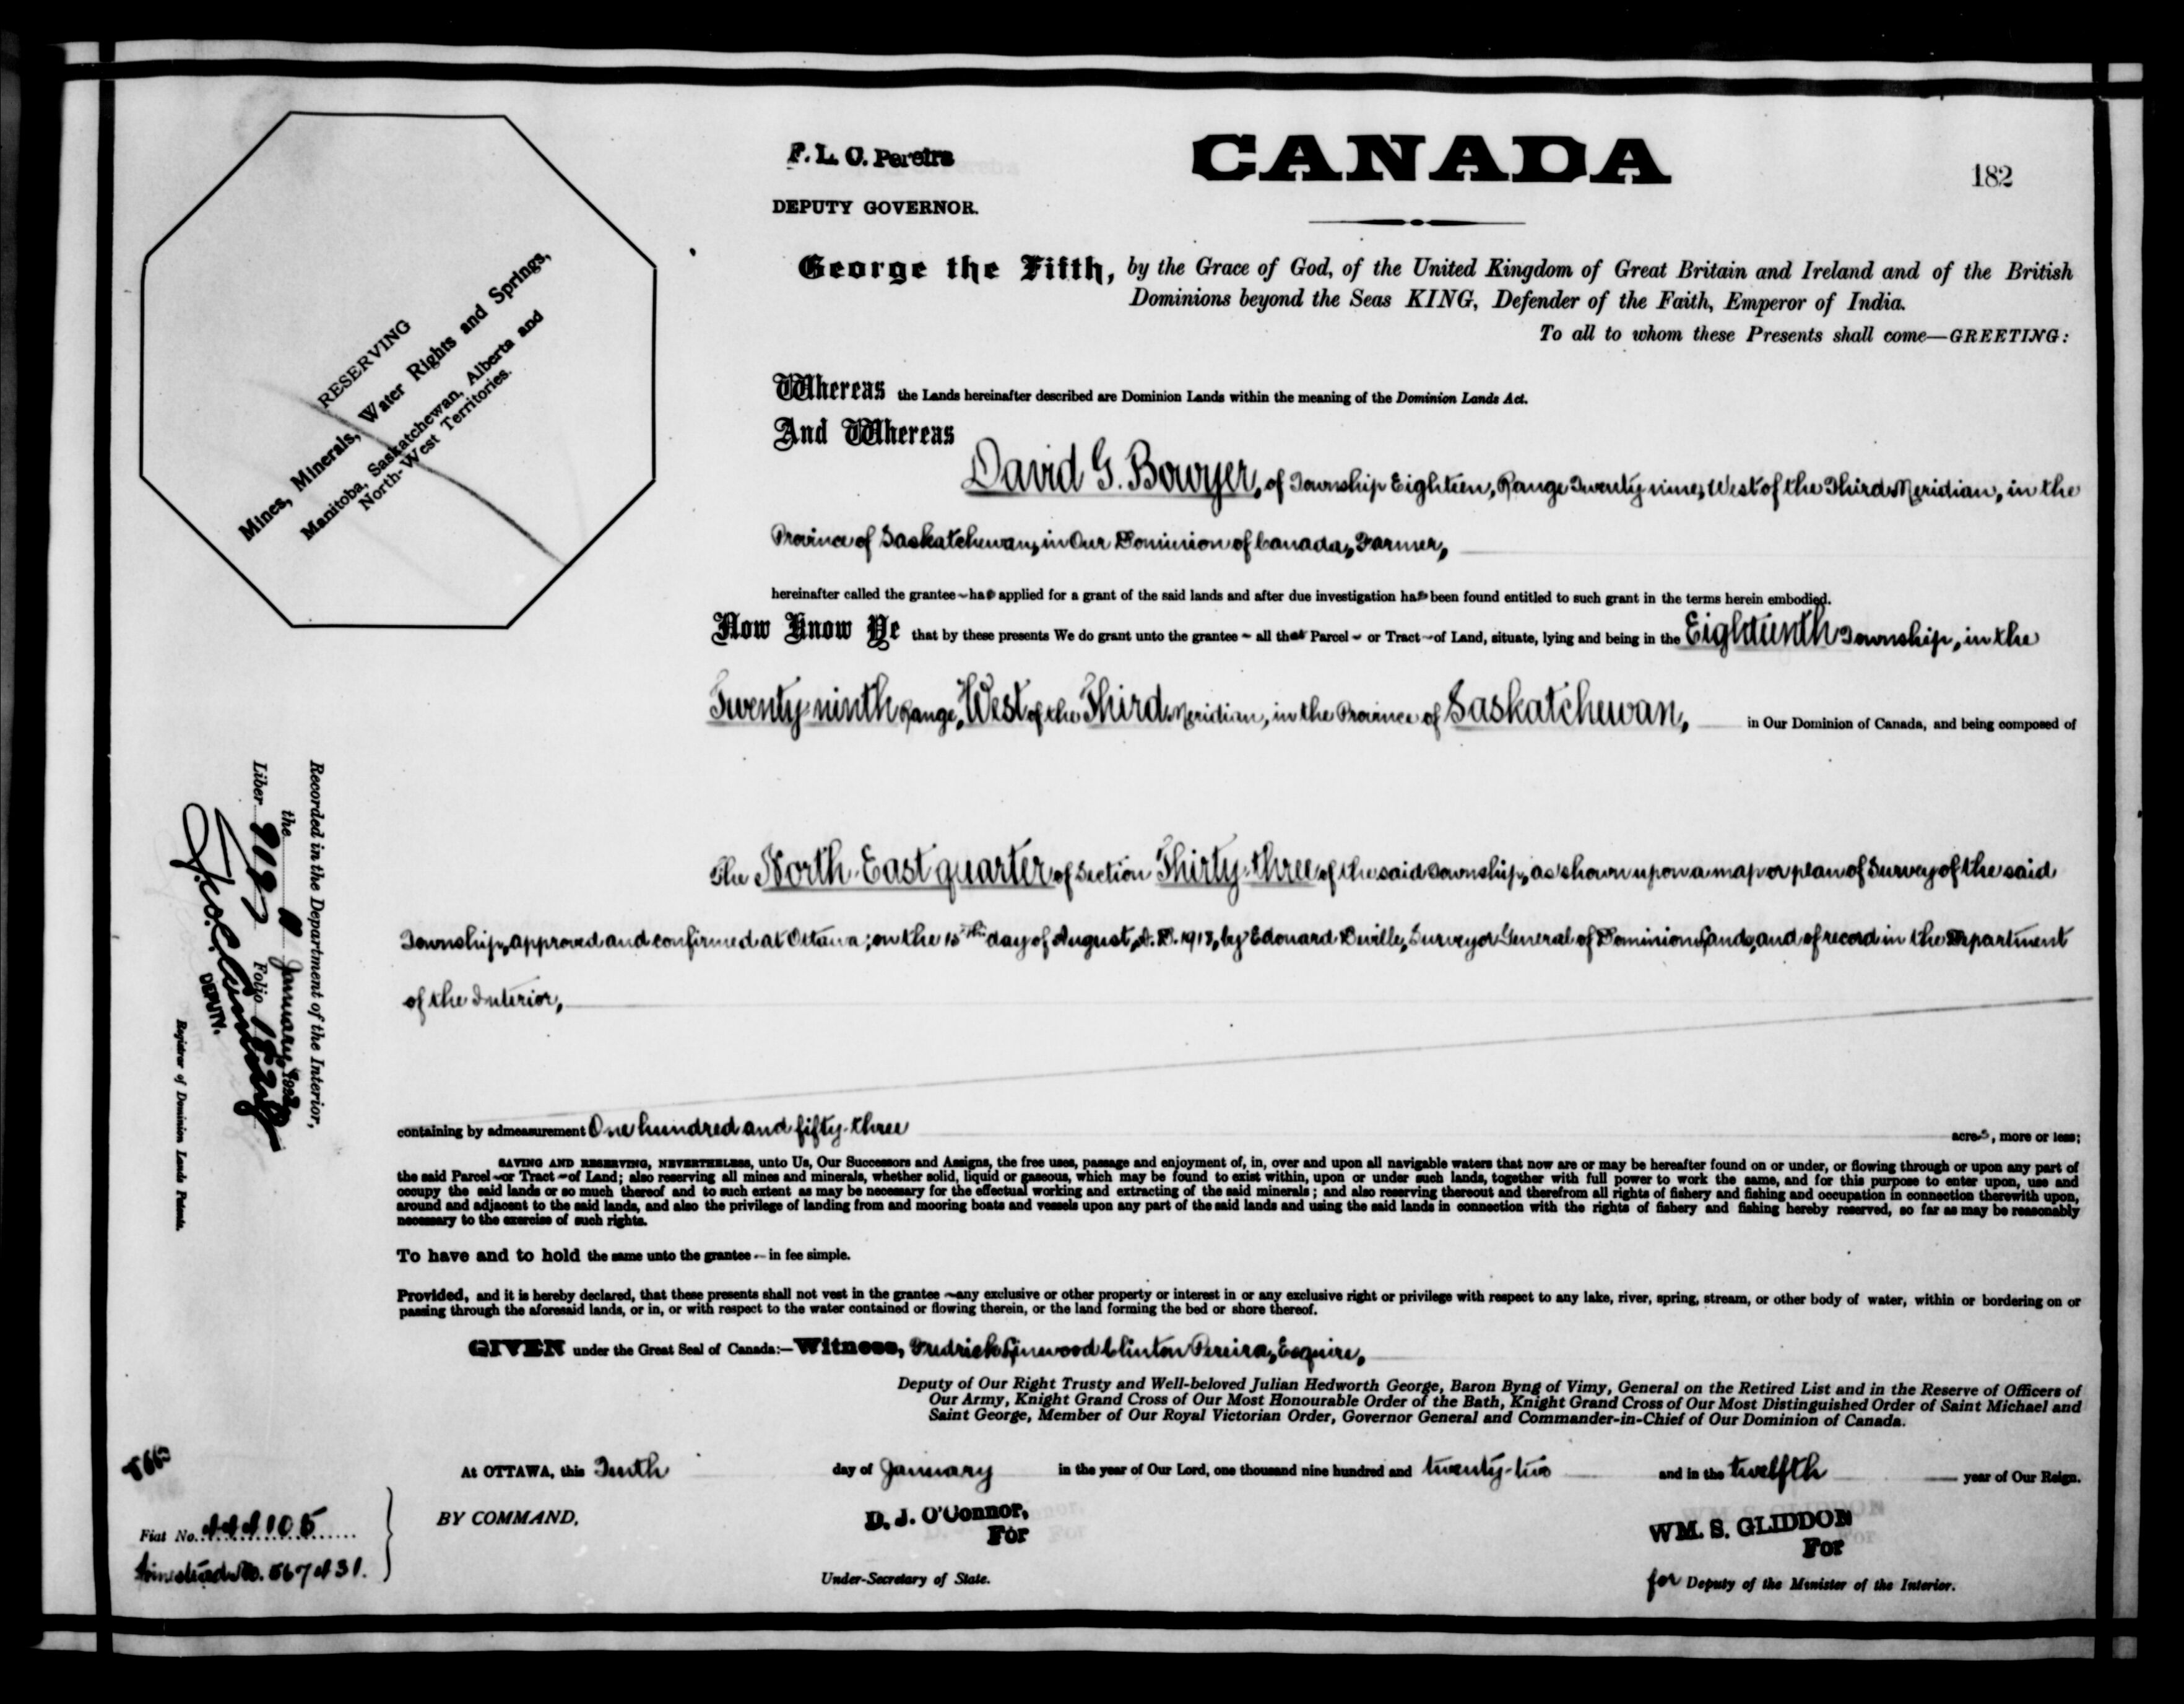 F. L. C. Pereira
DEPUTY GOVERNOR.
CANADA
182
RESERVING
Mines, Minerals, Water Rights and Springs,
Manitoba, Saskatchewan, Alberta and
North-West Territories.
George the Fifth, by the Grace of God, of the United Kingdom of Great Britain and Ireland and of the British
Dominions beyond the Seas KING, Defender of the Faith, Emperor of India.
To all to whom these Presents shall come—GREETING:
Whereas the Lands hereinafter described are Dominion Lands within the meaning of the Dominion Lands Act.
And Whereas
David G. Bowyer, of Township Eighteen, Range Twenty nine, West of the Third Meridian, in the
Province of Saskatchewan, in Our Dominion of Canada, Farmer,
hereinafter called the grantee has applied for a grant of the said lands and after due investigation has been found entitled to such grant in the terms herein embodied.
Now Know Ye that by these presents We do grant unto the grantee all that Parcel or Tract of Land, situate, lying and being in the Eighteenth Township, in the
Twenty-ninth Range, West of the Third Meridian, in the Province of Saskatchewan, in Our Dominion of Canada, and being composed of
The North-East quarter of Section Thirty-three of the said Township, as shown upon a map or plan of Survey of the said
Township, approved and confirmed at Ottawa, on the 15th day of August, A.D. 1918, by Edouard Deville, Surveyor General of Dominion Lands, and of record in the Department
of the Interior,
containing by admeasurement One hundred and fifty-three acres, more or less;
SAVING AND RESERVING, NEVERTHELESS, unto Us, Our Successors and Assigns, the free uses, passage and enjoyment of, in, over and upon all navigable waters that now are or may be hereafter found on or under, or flowing through or upon any part of
the said Parcel or Tract of Land; also reserving all mines and minerals, whether solid, liquid or gaseous, which may be found to exist within, upon or under such lands, together with full power to work the same, and for this purpose to enter upon, use and
occupy the said lands or so much thereof and to such extent as may be necessary for the effectual working and extracting of the said minerals; and also reserving thereout and therefrom all rights of fishery and fishing and occupation in connection therewith upon,
around and adjacent to the said lands, and also the privilege of landing from and mooring boats and vessels upon any part of the said lands and using the said lands in connection with the rights of fishery and fishing hereby reserved, so far as may be reasonably
necessary to the exercise of such rights.
To have and to hold the same unto the grantee in fee simple.
Provided, and it is hereby declared, that these presents shall not vest in the grantee any exclusive or other property or interest in or any exclusive right or privilege with respect to any lake, river, spring, stream, or other body of water, within or bordering on or
passing through the aforesaid lands, or in, or with respect to the water contained or flowing therein, or the land forming the bed or shore thereof.
GIVEN under the Great Seal of Canada:—Witness, Fredrick Linwood Clinton Pereira, Esquire,
Deputy of Our Right Trusty and Well-beloved Julian Hedworth George, Baron Byng of Vimy, General on the Retired List and in the Reserve of Officers of
Our Army, Knight Grand Cross of Our Most Honourable Order of the Bath, Knight Grand Cross of Our Most Distinguished Order of Saint Michael and
Saint George, Member of Our Royal Victorian Order, Governor General and Commander-in-Chief of Our Dominion of Canada.
At OTTAWA, this Tenth day of January in the year of Our Lord, one thousand nine hundred and twenty-two and in the twelfth year of Our Reign.
BY COMMAND,
D. J. O'Connor,
For
Under-Secretary of State.
WM. S. GLIDDON
For
for Deputy of the Minister of the Interior.
Recorded in the Department of the Interior,
the January, 1922
Liber Folio
DEPUTY.
Registrar of Dominion Lands Patents.
Fiat No.
Homestead No.